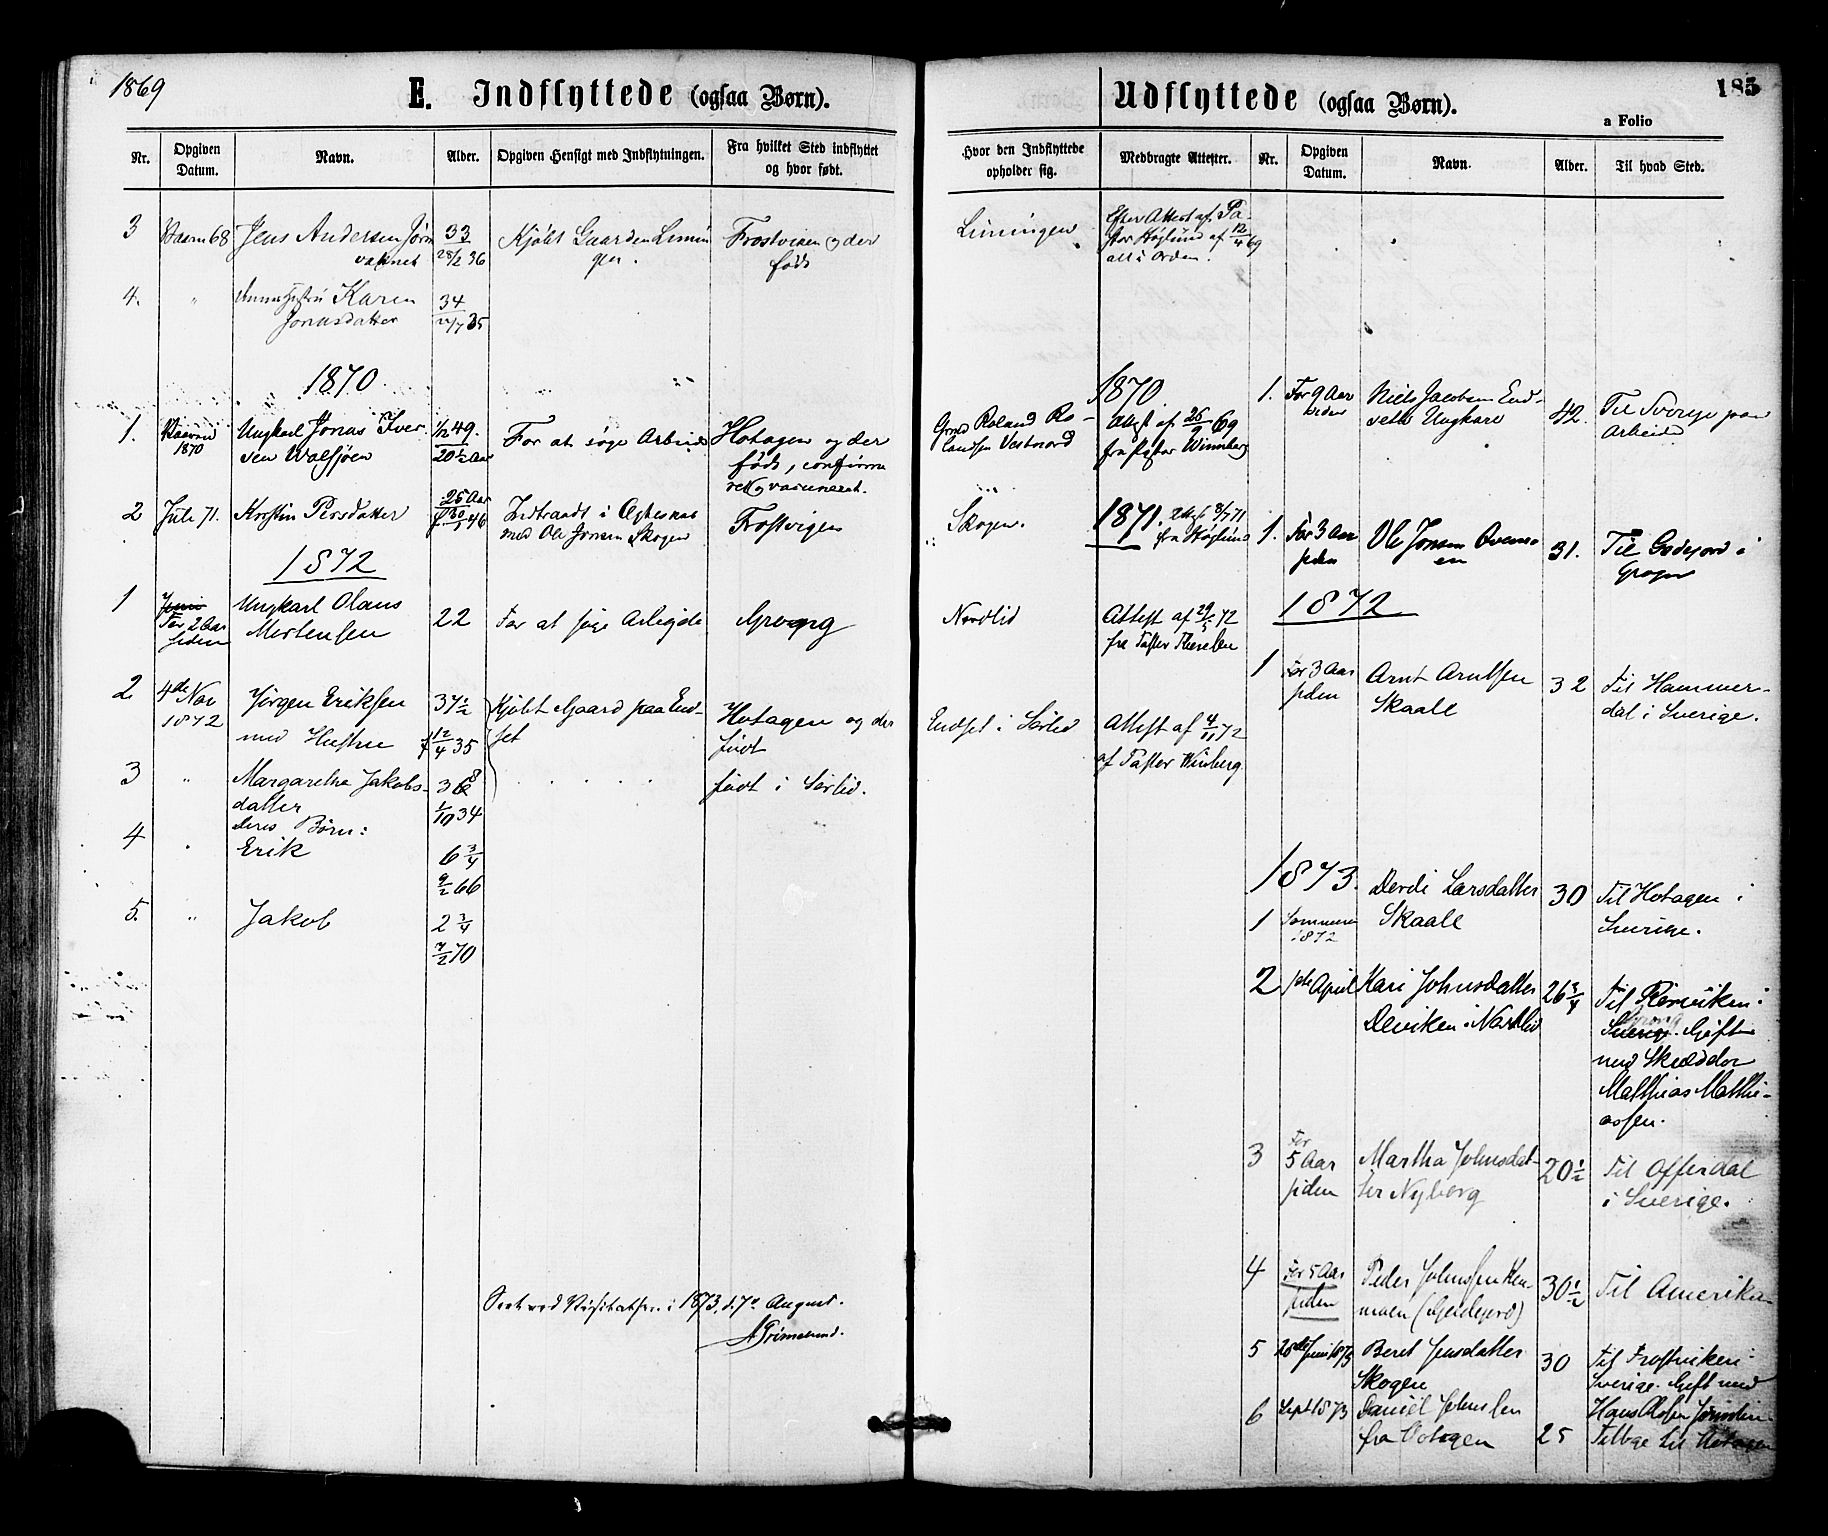 1869
E. Indflyttede (ogsaa Børn).
Nr.
Opgiven Datum.
Navn.
Alder.
Opgiven Hensigt med Indflytningen.
Fra hvilket Sted indflyttet og hvor født.
3 Vaaren 68 Jens Andersen Jørn 33 Kjøbt Gaarden Limin Frostviken og der
28/2 36 gen. født
4. " Karen 34
Jonasdatter 35
1870.
1. Vaaren Ungkarl Jonas Iver 1/12 49. For at søge Arbeide Hotagen og der
1870 sen Valsjøen 20½ Aar født, confirme
ret og vaccineret.
2 Juli 71. Kirstin Persdatter 25 Aar Indtraadt i Ægteskab Frostvigen
f 30/1 46 med Ole Jonsen Skogen
1872
1 Juni Ungkarl Olaus 22 For at søge Arbejde Grong
For 2 Aar Mortensen
siden
2 4de Nov Jørgen Eriksen 37½ Kjøbt Gaard paa End- Hotagen og der
1872 med Hustru f 12/4 35 set født
3 " Margaretha Jakobs- 38 født i Sørlid.
datter 1/10 34
deres Børn:
4 Erik 6¾
9/2 66
5. " Jakob 2¾
7/2 70
Seet ved Visitatsen i 1873, d. 7de August.
A Grimelund.
185
Udflyttede (ogsaa Børn).
a Folio
Hvor den Indflyttede opholder sig.
Medbragte Attester.
Nr.
Opgiven Datum.
Navn.
Alder.
Til hvad Sted.
Limingen Efter Attest af Pa-
stor Höglund af 12/4 69
alt i Orden.
1870
Gaard Roland Ro- Attest af 26/9 69
landsen Vestnord fra Pastor Winnberg
1. For 9 Aar Niels Jacobsen End- 42. Til Sverige paa
siden seth Ungkarl Arbeide
Skogen. 1871. Attest 8/7 71
fra Höglund
1. For 3 Aar Ole Jonsen 31. Til Godejord i
siden Grong
1872
Nordlid Attest af 29/5 72
fra Pastor
1 For 3 Aar Arnt Arntsen 32 Til Hammer-
siden Skaale dal i Sverige.
Endset i Sørlid Attest af 4/11 72
af Pastor Winberg.
1873. Berdi Larsdatter 30 Til Hotagen i
1 Sommeren Skaale Sverige.
1872
2 1ste April Kari Johnsdatter 26¾ Til Rørviken i
Deviken i Nordlid Grong
Sverige. Gift
med Skrædder
Matthias Matthi-
assen.
3 For
5 Aar Martha Johnsdat- 20½ Til Offerdal
siden ter Nyberg i Sverige.
4 For 5 Aar Peder Johnssen 30½ Til Amerika
siden moen (Godejord)
5 20de Juni 1873 Beret Jensdatter 30 Til Frostviken i
Skogen Sverige. Gift med
Hans Olssen
6 Sept 1873 Daniel Johnssen 25 Tilbage til Hotagen
fra Hotagen